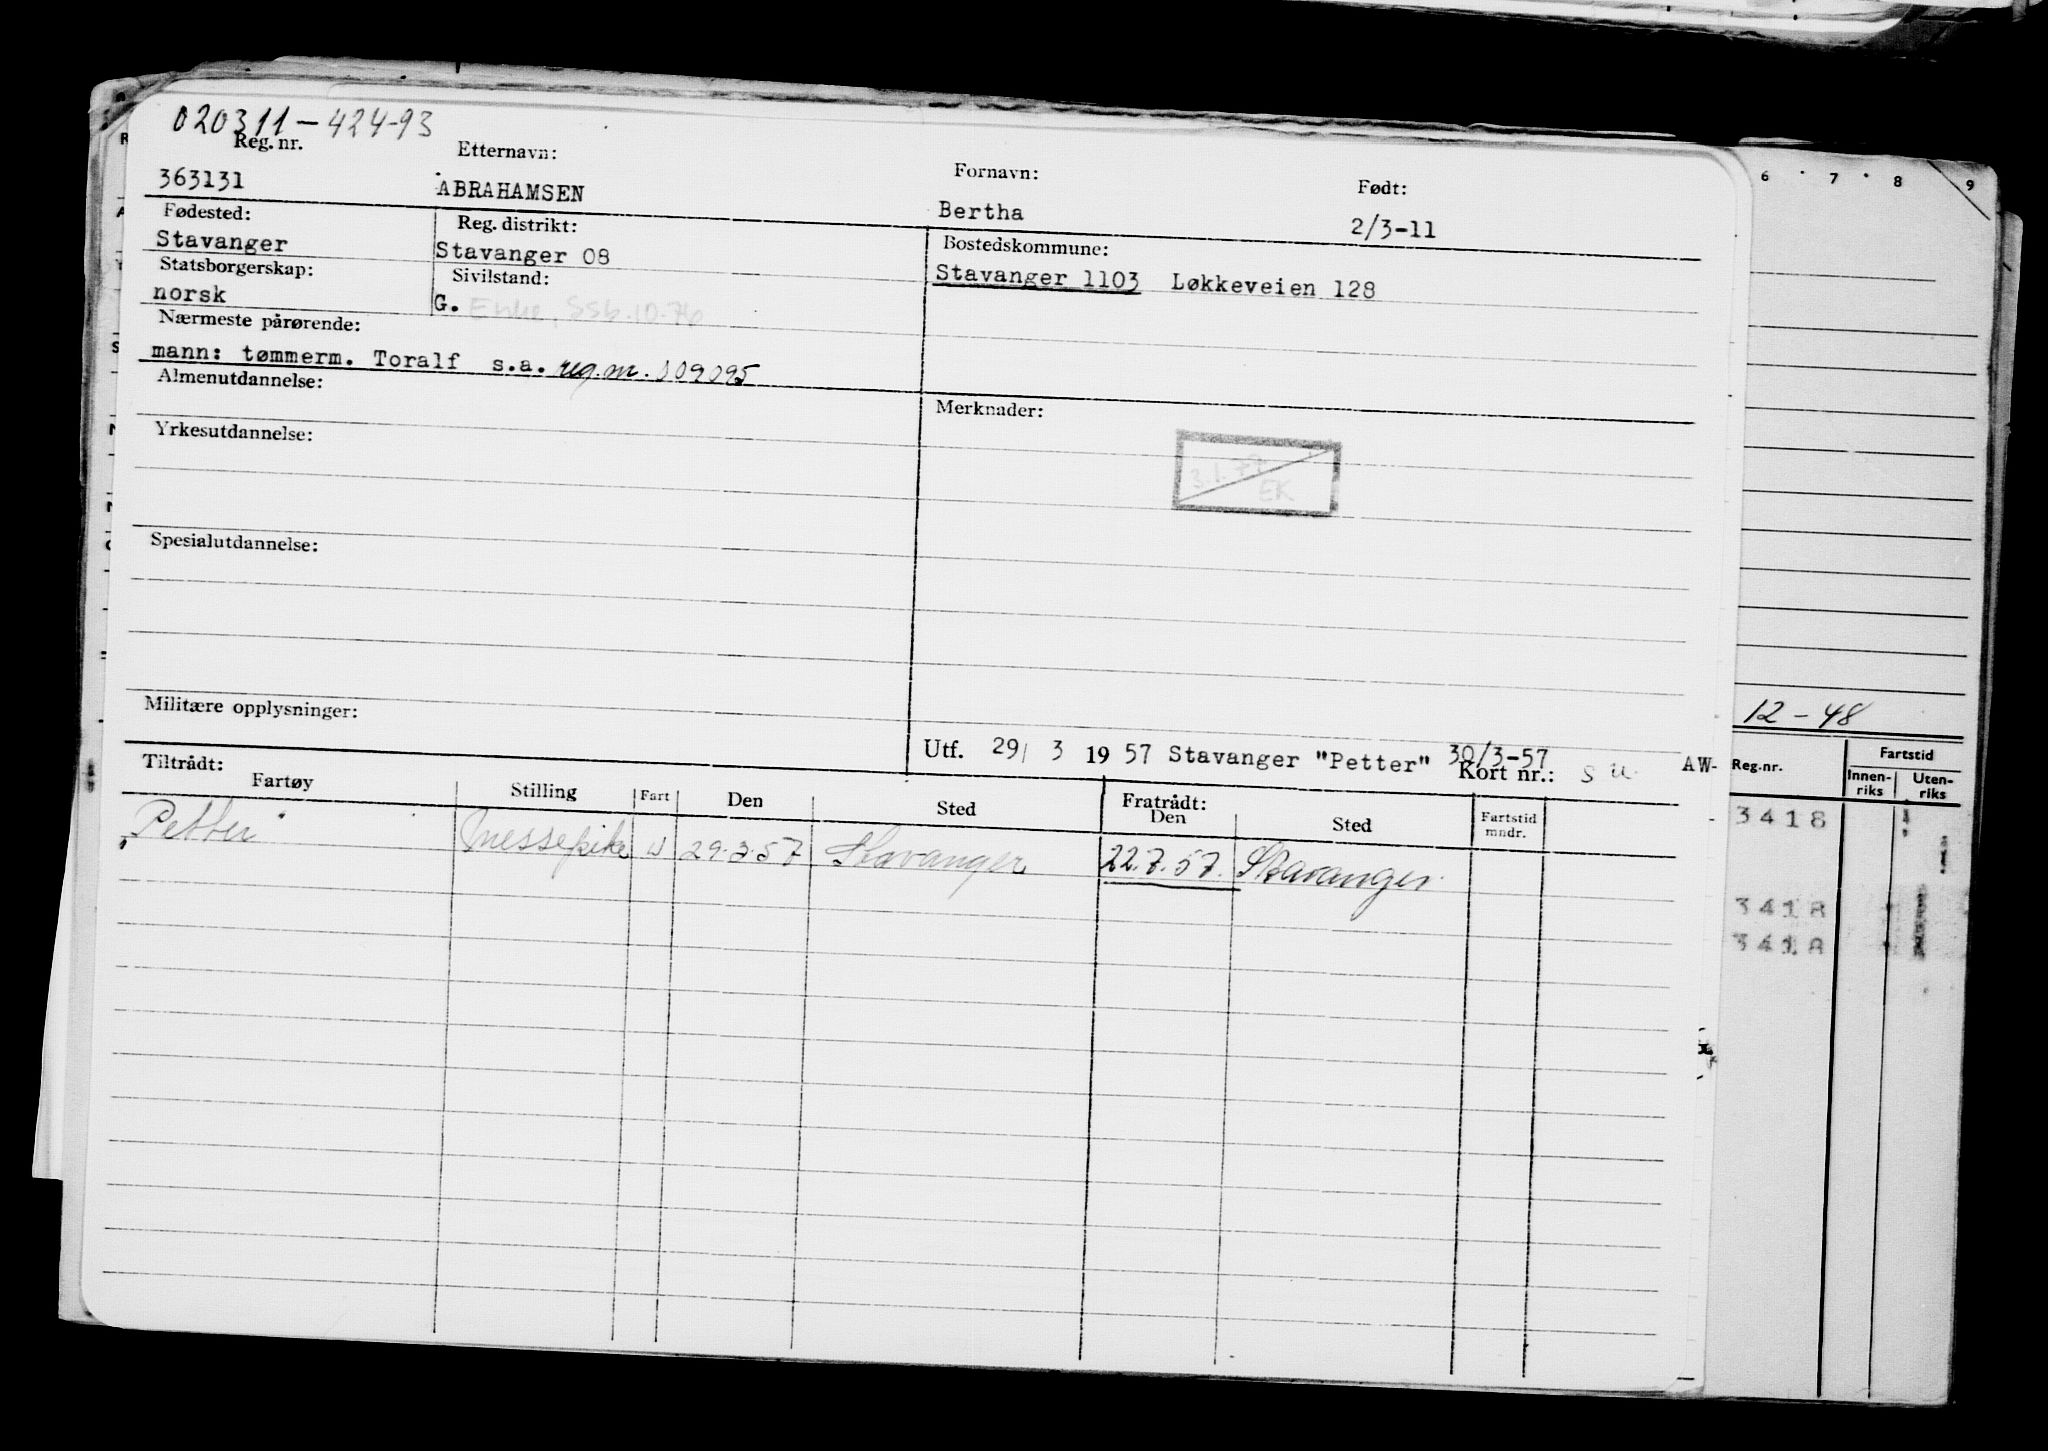 020311-424-93
Reg. nr. Etternavn: Fornavn: Født:
363131 ABRAHAMSEN Bertha 2/3-11
Fødested: Reg. distrikt: Bostedskommune:
Stavanger Stavanger 08 Stavanger 1103 Løkkeveien 128
Statsborgerskap: Sivilstand:
norsk G. Enke, SSb. 10-76
Nærmeste pårørende:
mann: tømmerm. Toralf s.a. reg.nr. 109095
Almenutdannelse: Merknader:
Yrkesutdannelse:
3.1.77
EK
Spesialutdannelse:
Militære opplysninger:
Utf. 29/ 3 19 57 Stavanger "Petter" 30/3-57
Tiltrådt: Kort nr.: AW-
Fartøy Stilling Fart Den Sted Fratrådt: Den Sted Fartstid mndr.
"Petter" Messepike U 29.3.57 Stavanger 22.7.57. Stavanger
6 7 8 9
12-48
Reg.nr. Fartstid
Innen-riks Uten-riks
3418
3418
3418